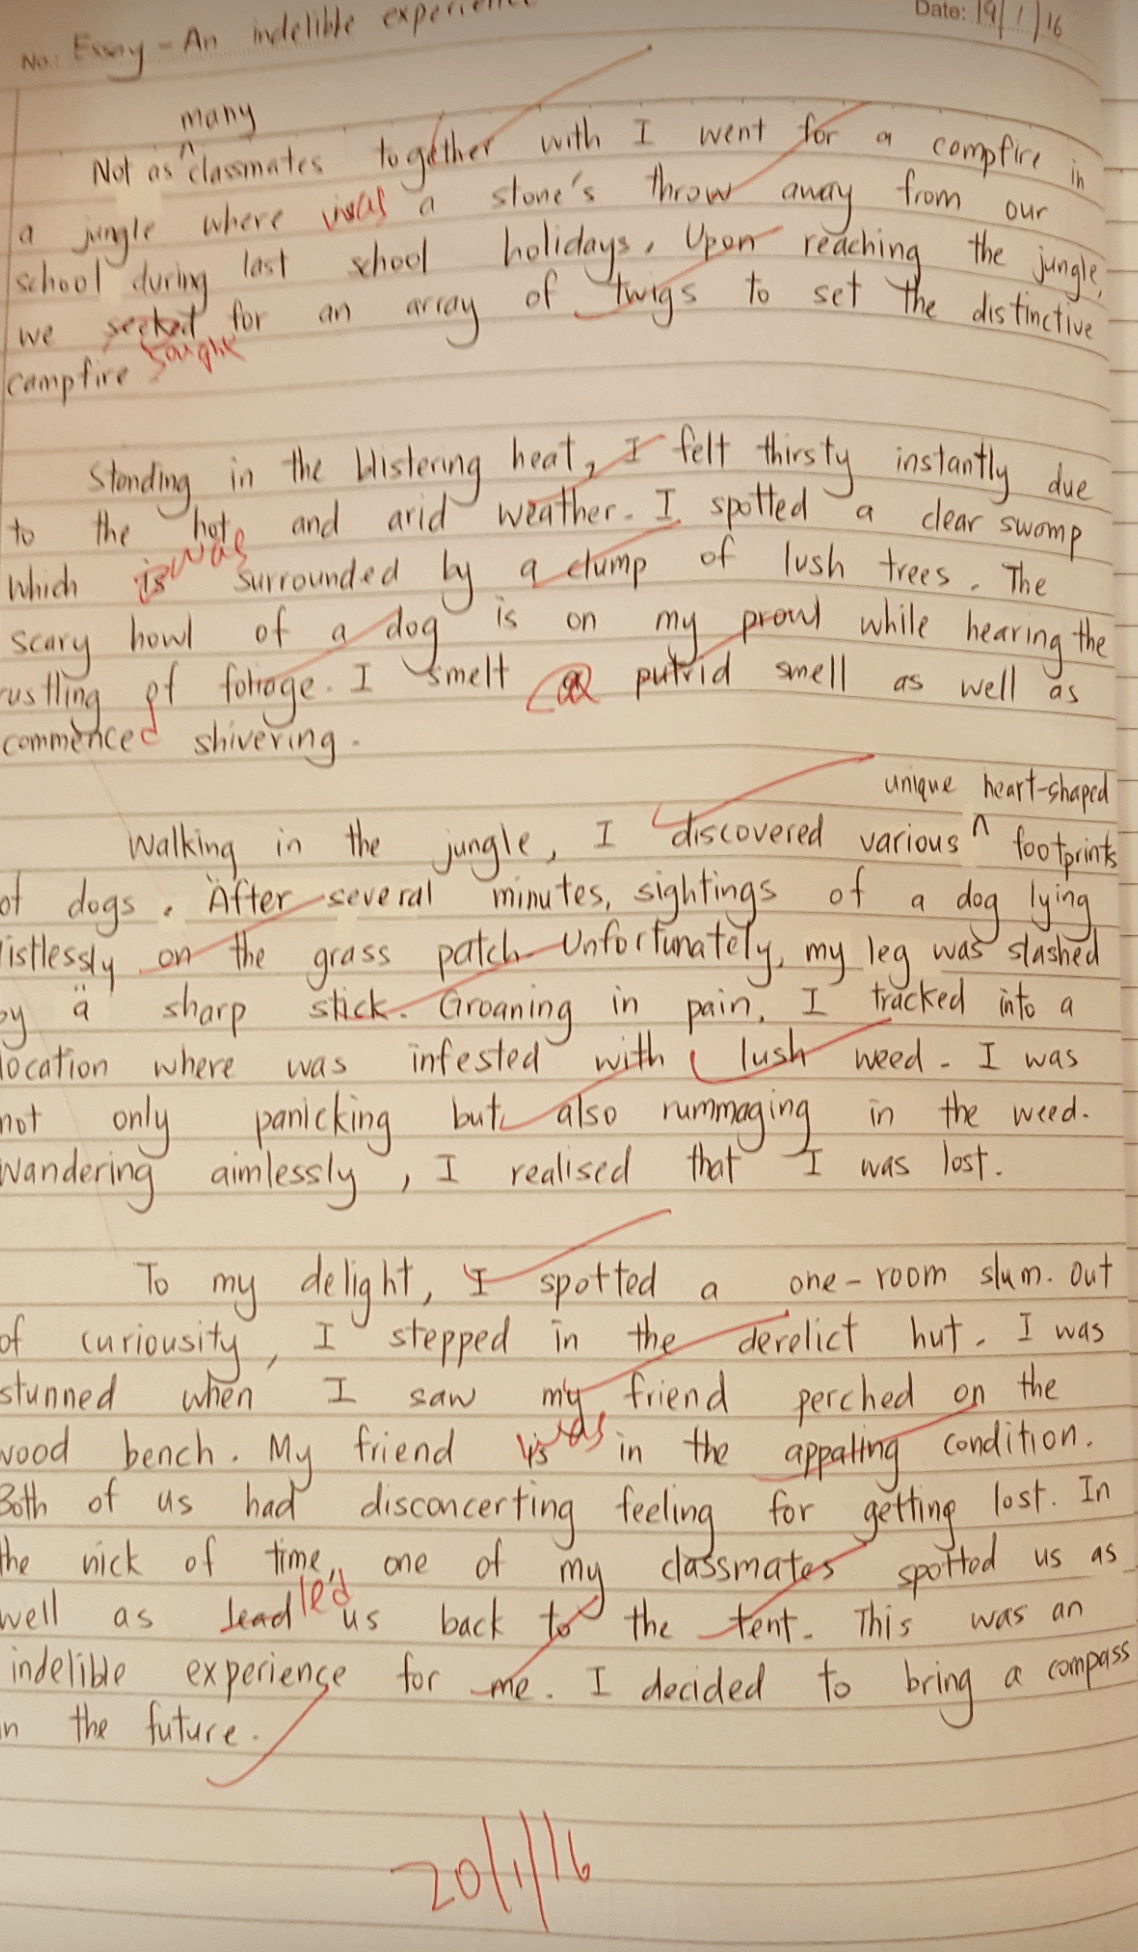 No.: Essay - An indelible experience Date: 19/1/16
many
Not as ^ classmates together with I went for a campfire in
a jungle where was a stone's throw away from our
school during last school holidays. Upon reaching the jungle,
we seeked for an array of twigs to set the distinctive
campfire sought
Standing in the blistering heat, I felt thirsty instantly due
to the hot and arid weather. I spotted a clear swamp
which is was surrounded by a clump of lush trees. The
scary howl of a dog is on my prowl while hearing the
rustling of foliage. I smelt a putrid smell as well as
commenced shivering.
unique heart-shaped
Walking in the jungle, I discovered various ^ footprints
of dogs. After several minutes, sightings of a dog lying
listlessly on the grass patch. Unfortunately, my leg was slashed
by a sharp stick. Groaning in pain, I tracked into a
location where was infested with lush weed. I was
not only panicking but also rummaging in the weed.
Wandering aimlessly, I realised that I was lost.
To my delight, I spotted a one-room slum. Out
of curiousity, I stepped in the derelict hut. I was
stunned when I saw my friend perched on the
wood bench. My friend is was in the appaling condition.
Both of us had disconcerting feeling for getting lost. In
the nick of time, one of my classmates spotted us as
well as lead led us back to the tent. This was an
indelible experience for me. I decided to bring a compass
in the future.
20/1/16